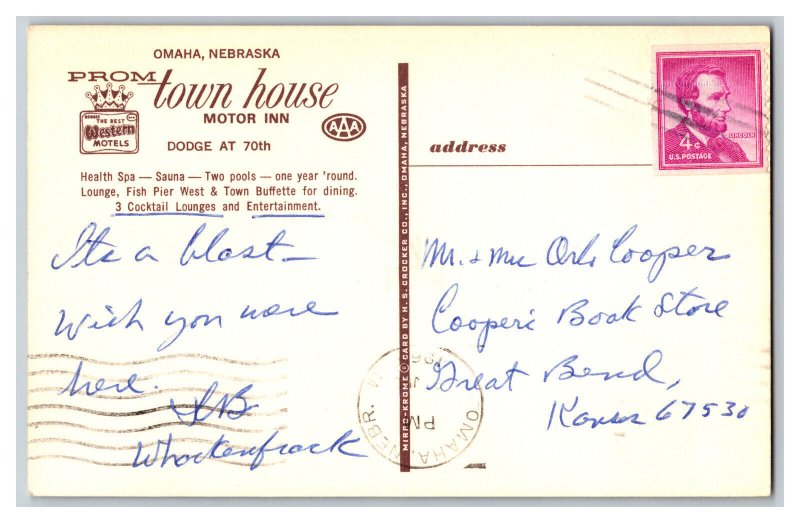 OMAHA, NEBRASKA
PROM town house
MOTOR INN
THE BEST
Western
MOTELS
AAA
DODGE AT 70th
Health Spa — Sauna — Two pools — one year 'round.
Lounge, Fish Pier West & Town Buffette for dining.
3 Cocktail Lounges and Entertainment.
Its a blast —
Wish you were
here.
MIRRO-KROME ® CARD BY H. S. CROCKER CO., INC., OMAHA, NEBRASKA
OMAHA, NEBR.
PM
4¢
LINCOLN
U.S. POSTAGE
address
Mr. & Mrs Orlo Cooper
Cooper's Book Store
Great Bend,
Kansas 67530